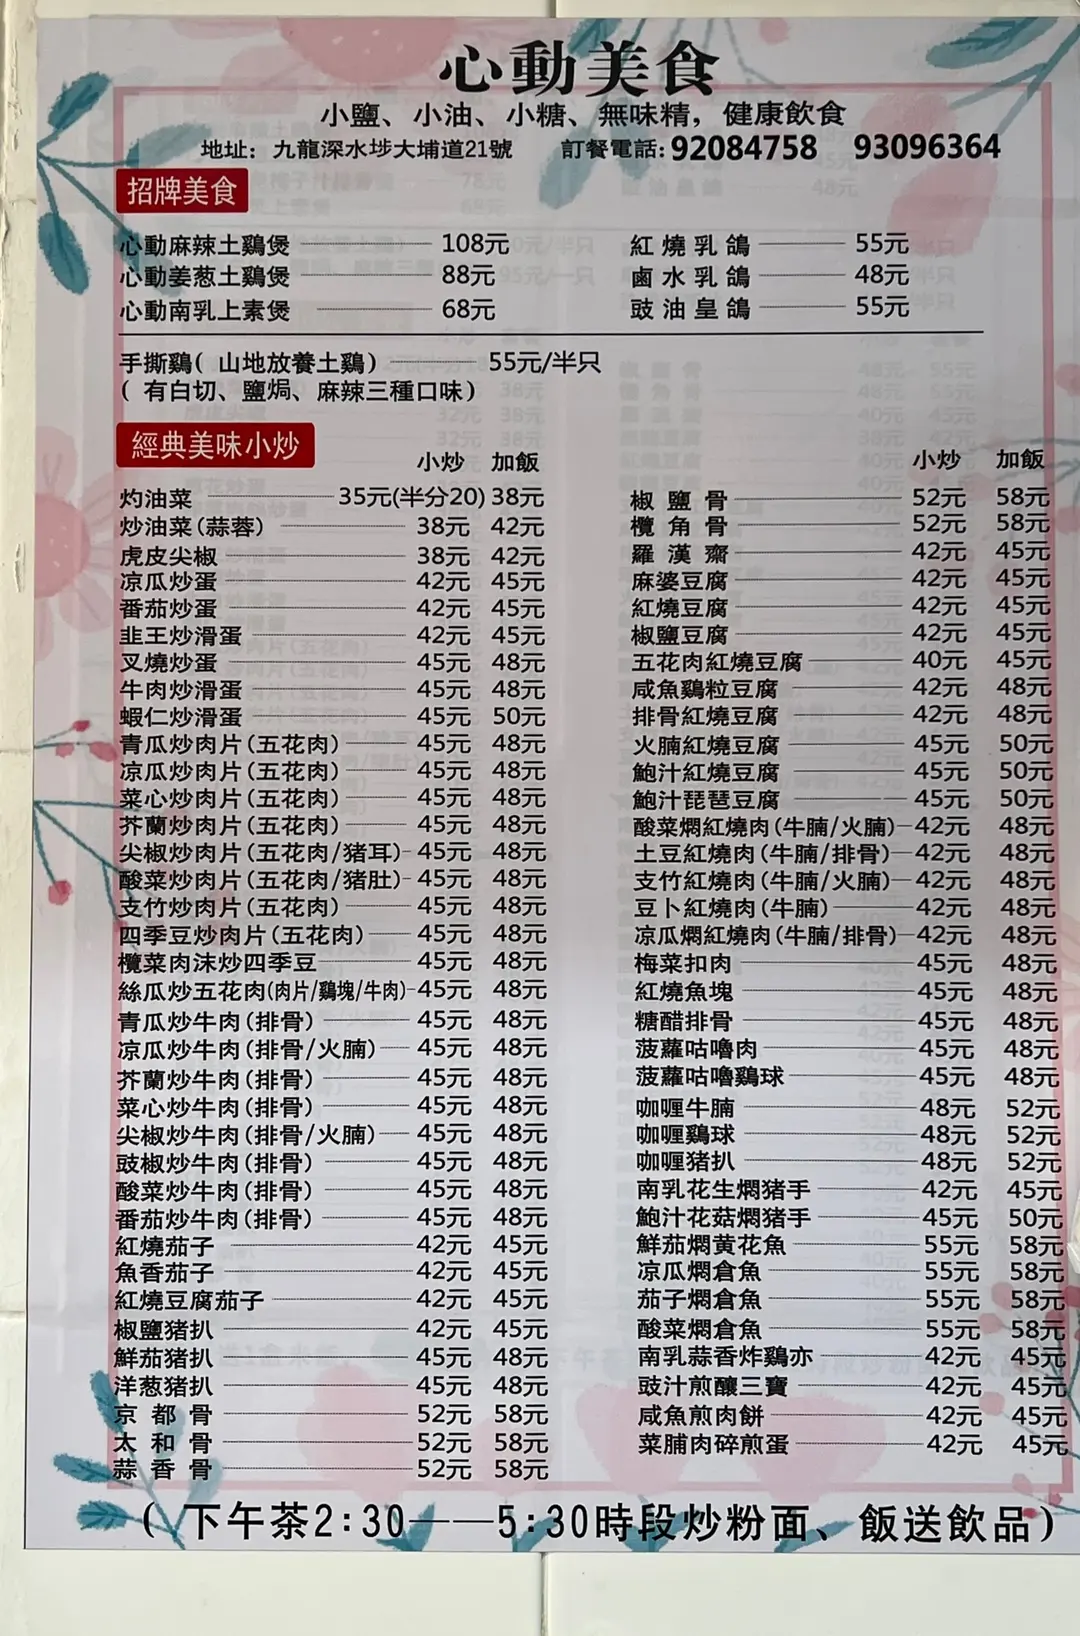 心動美食
小鹽、小油、小糖、無味精，健康飲食
地址：九龍深水埗大埔道21號 訂餐電話:92084758 93096364
招牌美食
心動麻辣土鷄煲 108元
心動姜葱土鷄煲 88元
心動南乳上素煲 68元
紅燒乳鴿 55元
鹵水乳鴿 48元
豉油皇鴿 55元
手撕鷄( 山地放養土鷄) 55元/半只
( 有白切、鹽焗、麻辣三種口味)
經典美味小炒
小炒 加飯
灼油菜 35元(半分20) 38元
炒油菜(蒜蓉) 38元 42元
虎皮尖椒 38元 42元
凉瓜炒蛋 42元 45元
番茄炒蛋 42元 45元
韭王炒滑蛋 42元 45元
叉燒炒蛋 45元 48元
牛肉炒滑蛋 45元 48元
蝦仁炒滑蛋 45元 50元
青瓜炒肉片(五花肉) 45元 48元
凉瓜炒肉片(五花肉) 45元 48元
菜心炒肉片(五花肉) 45元 48元
芥蘭炒肉片(五花肉) 45元 48元
尖椒炒肉片(五花肉/猪耳) 45元 48元
酸菜炒肉片(五花肉/猪肚) 45元 48元
支竹炒肉片(五花肉) 45元 48元
四季豆炒肉片(五花肉) 45元 48元
欖菜肉沫炒四季豆 45元 48元
絲瓜炒五花肉(肉片/鷄塊/牛肉) 45元 48元
青瓜炒牛肉(排骨) 45元 48元
凉瓜炒牛肉(排骨/火腩) 45元 48元
芥蘭炒牛肉(排骨) 45元 48元
菜心炒牛肉(排骨) 45元 48元
尖椒炒牛肉(排骨/火腩) 45元 48元
豉椒炒牛肉(排骨) 45元 48元
酸菜炒牛肉(排骨) 45元 48元
番茄炒牛肉(排骨) 45元 48元
紅燒茄子 42元 45元
魚香茄子 42元 45元
紅燒豆腐茄子 42元 45元
椒鹽猪扒 42元 45元
鮮茄猪扒 45元 48元
洋葱猪扒 45元 48元
京都骨 52元 58元
太和骨 52元 58元
蒜香骨 52元 58元
小炒 加飯
椒鹽骨 52元 58元
欖角骨 52元 58元
羅漢齋 42元 45元
麻婆豆腐 42元 45元
紅燒豆腐 42元 45元
椒鹽豆腐 42元 45元
五花肉紅燒豆腐 40元 45元
咸魚鷄粒豆腐 42元 48元
排骨紅燒豆腐 42元 48元
火腩紅燒豆腐 45元 50元
鮑汁紅燒豆腐 45元 50元
鮑汁琵琶豆腐 45元 50元
酸菜燜紅燒肉(牛腩/火腩) 42元 48元
土豆紅燒肉(牛腩/排骨) 42元 48元
支竹紅燒肉(牛腩/火腩) 42元 48元
豆卜紅燒肉(牛腩) 42元 48元
凉瓜燜紅燒肉(牛腩/排骨) 42元 48元
梅菜扣肉 45元 48元
紅燒魚塊 45元 48元
糖醋排骨 45元 48元
菠蘿咕嚕肉 45元 48元
菠蘿咕嚕鷄球 45元 48元
咖喱牛腩 48元 52元
咖喱鷄球 48元 52元
咖喱猪扒 48元 52元
南乳花生燜猪手 42元 45元
鮑汁花菇燜猪手 45元 50元
鮮茄燜黄花魚 55元 58元
凉瓜燜倉魚 55元 58元
茄子燜倉魚 55元 58元
酸菜燜倉魚 55元 58元
南乳蒜香炸鷄亦 42元 45元
豉汁煎釀三寶 42元 45元
咸魚煎肉餅 42元 45元
菜脯肉碎煎蛋 42元 45元
( 下午茶2:30——5:30時段炒粉面、飯送飲品)